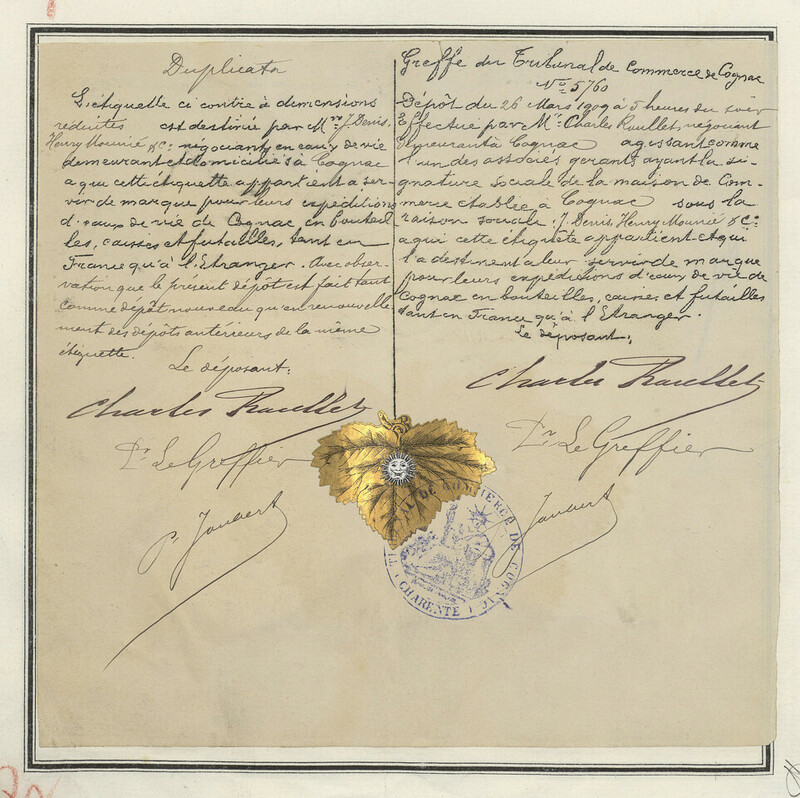 Duplicata
L'étiquette ci contre à dimensions
réduites est destinée par Mrs J. Denis,
Henry Mounié & Co. négociants en eaux de vie
demeurant et domiciliés à Cognac
a qui cette étiquette appartient a ser-
vir de marque pour leurs expéditions
d'eaux de vie de Cognac en bouteil
les, caisses et futailles, tant en
France qu'à l'Etranger. Avec obser-
vation que le présent dépôt est fait tant
comme dépôt nouveau qu'en renouvelle
ment des dépôts antérieurs de la même
étiquette.
Le déposant:
Charles Raullet
Pr Le Greffier
P. Joubert
Greffe du Tribunal de Commerce de Cognac
No 5760
Dépôt du 26 Mars 1909 à 5 heures du soir
Effectué par Mr. Charles Raullet, négociant
demeurant à Cognac agissant comme
l'un des associés gerants ayant la si-
gnature sociale de la maison de Com-
merce établie à Cognac sous la
raison sociale: J. Denis, Henry Mounié & Co.
a qui cette étiquète appartient et qui
la destinent a leur servir de marque
pour leurs expéditions d'eaux de vie de
Cognac en bouteilles, caisses et futailles
tant en France qu'à l'Etranger.
Le déposant:
Charles Raullet
Pr Le Greffier
Joubert
DE COMMERCE DE COGNAC
CHARENTE